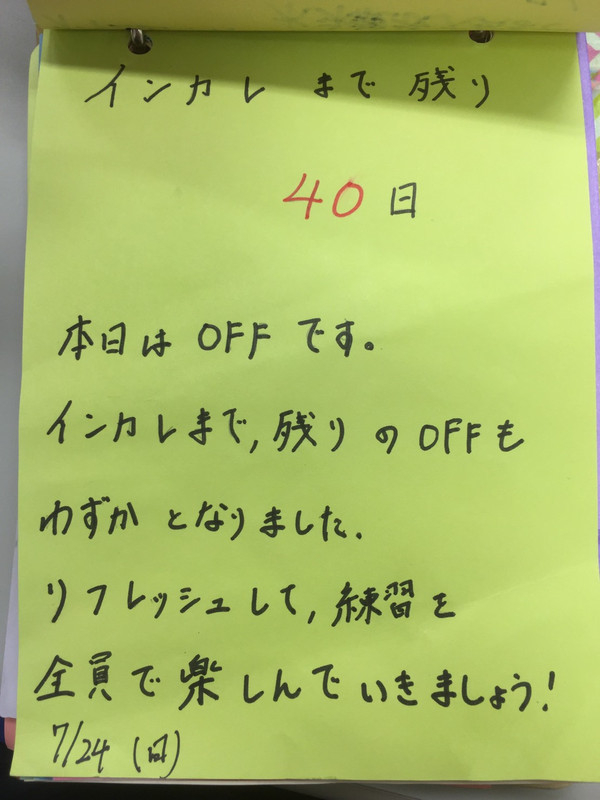 インカレ まで 残り
40日
本日は OFF です。
インカレまで,残りのOFFも
わずか となりました.
リフレッシュして,練習を
全員で楽しんでいきましょう!
7/24 (日)